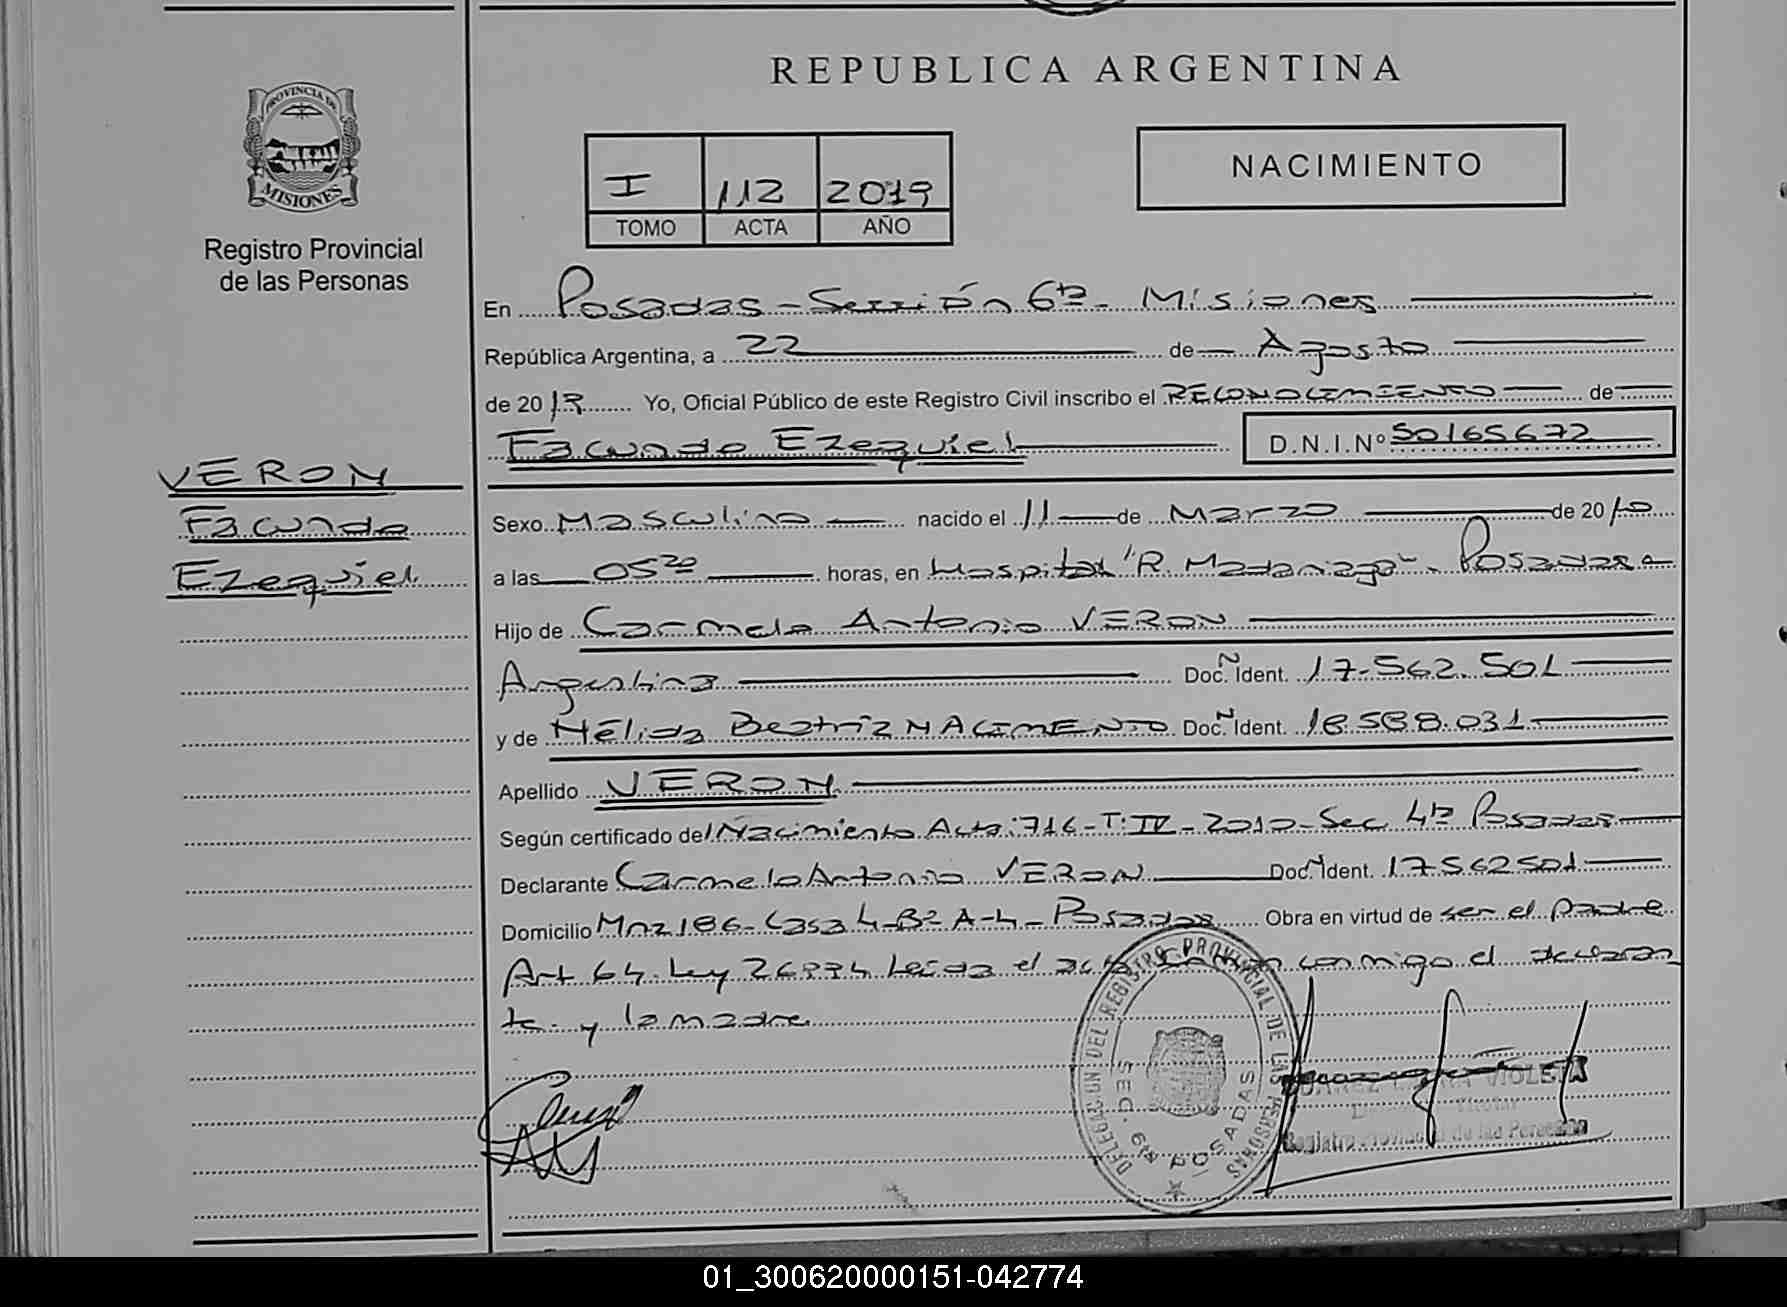 REPUBLICA ARGENTINA
PROVINCIA DE
MISIONES
Registro Provincial
de las Personas
I 112 2019
TOMO ACTA AÑO
NACIMIENTO
En Posadas - Sección 6ta - Misiones
República Argentina, a 22 de Agosto
de 2019 Yo, Oficial Público de este Registro Civil inscribo el RECONOCIMIENTO de
Facundo Ezequiel D.N.I.Nº 50165672
VERON
Facundo
Ezequiel
Sexo Masculino nacido el 11 de Marzo de 2010
a las 05 horas, en Hospital "R. Madariaga" - Posadas
Hijo de Carmelo Antonio VERON
Argentina Doc. N Ident. 17.562.501
y de Nélida Beatriz NACIMENTO Doc. N Ident. 18.588.031
Apellido VERON
Según certificado del Nacimiento Acta: 716 - T: IV - 2010 - Sec 4ta Posadas
Declarante Carmelo Antonio VERON Doc. N Ident. 17.562501
Domicilio Mnz 186 - Casa 4 - Bº A-4 - Posadas Obra en virtud de ser el padre
Art 64. Ley 26994 Leída el acta conmigo el declaran
te y la madre
DELEGACION DEL REGISTRO PROVINCIAL DE LAS PERSONAS
SEC. 6ta POSADAS
VIOLETA
Titular
Registro Provincial de las Personas
01_300620000151-042774